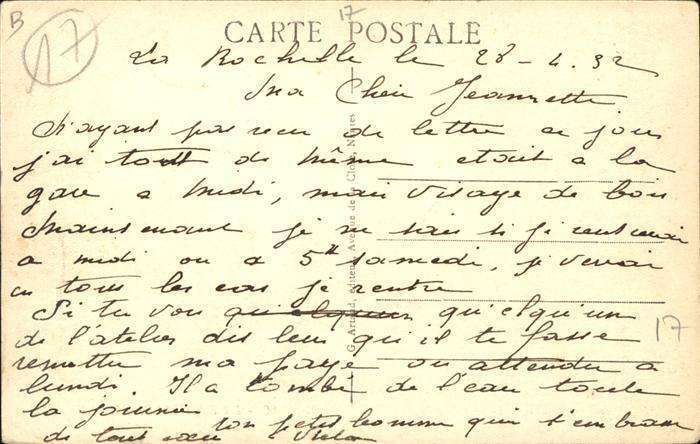 B
17
17
CARTE POSTALE
La Rochelle le 28-4.32
Ma Cheie Jeannette
N'ayant pas recu de lettre ce jour
j'ai tout de même etait a la
gare a midi, mais visage de bois
Maintenant je ne sais si je rentrerai
a midi ou a 5h samedi, je verrai
en tous les cas je rentre
Si tu vois quelqu'un
de l'atelier dis leur qu'il te fasse
remettre ma paye ou attendre a
lundi. Il a tombé de l'eau toute
la journée
ton petit homme qui t'embrasse
de tout cœur
17